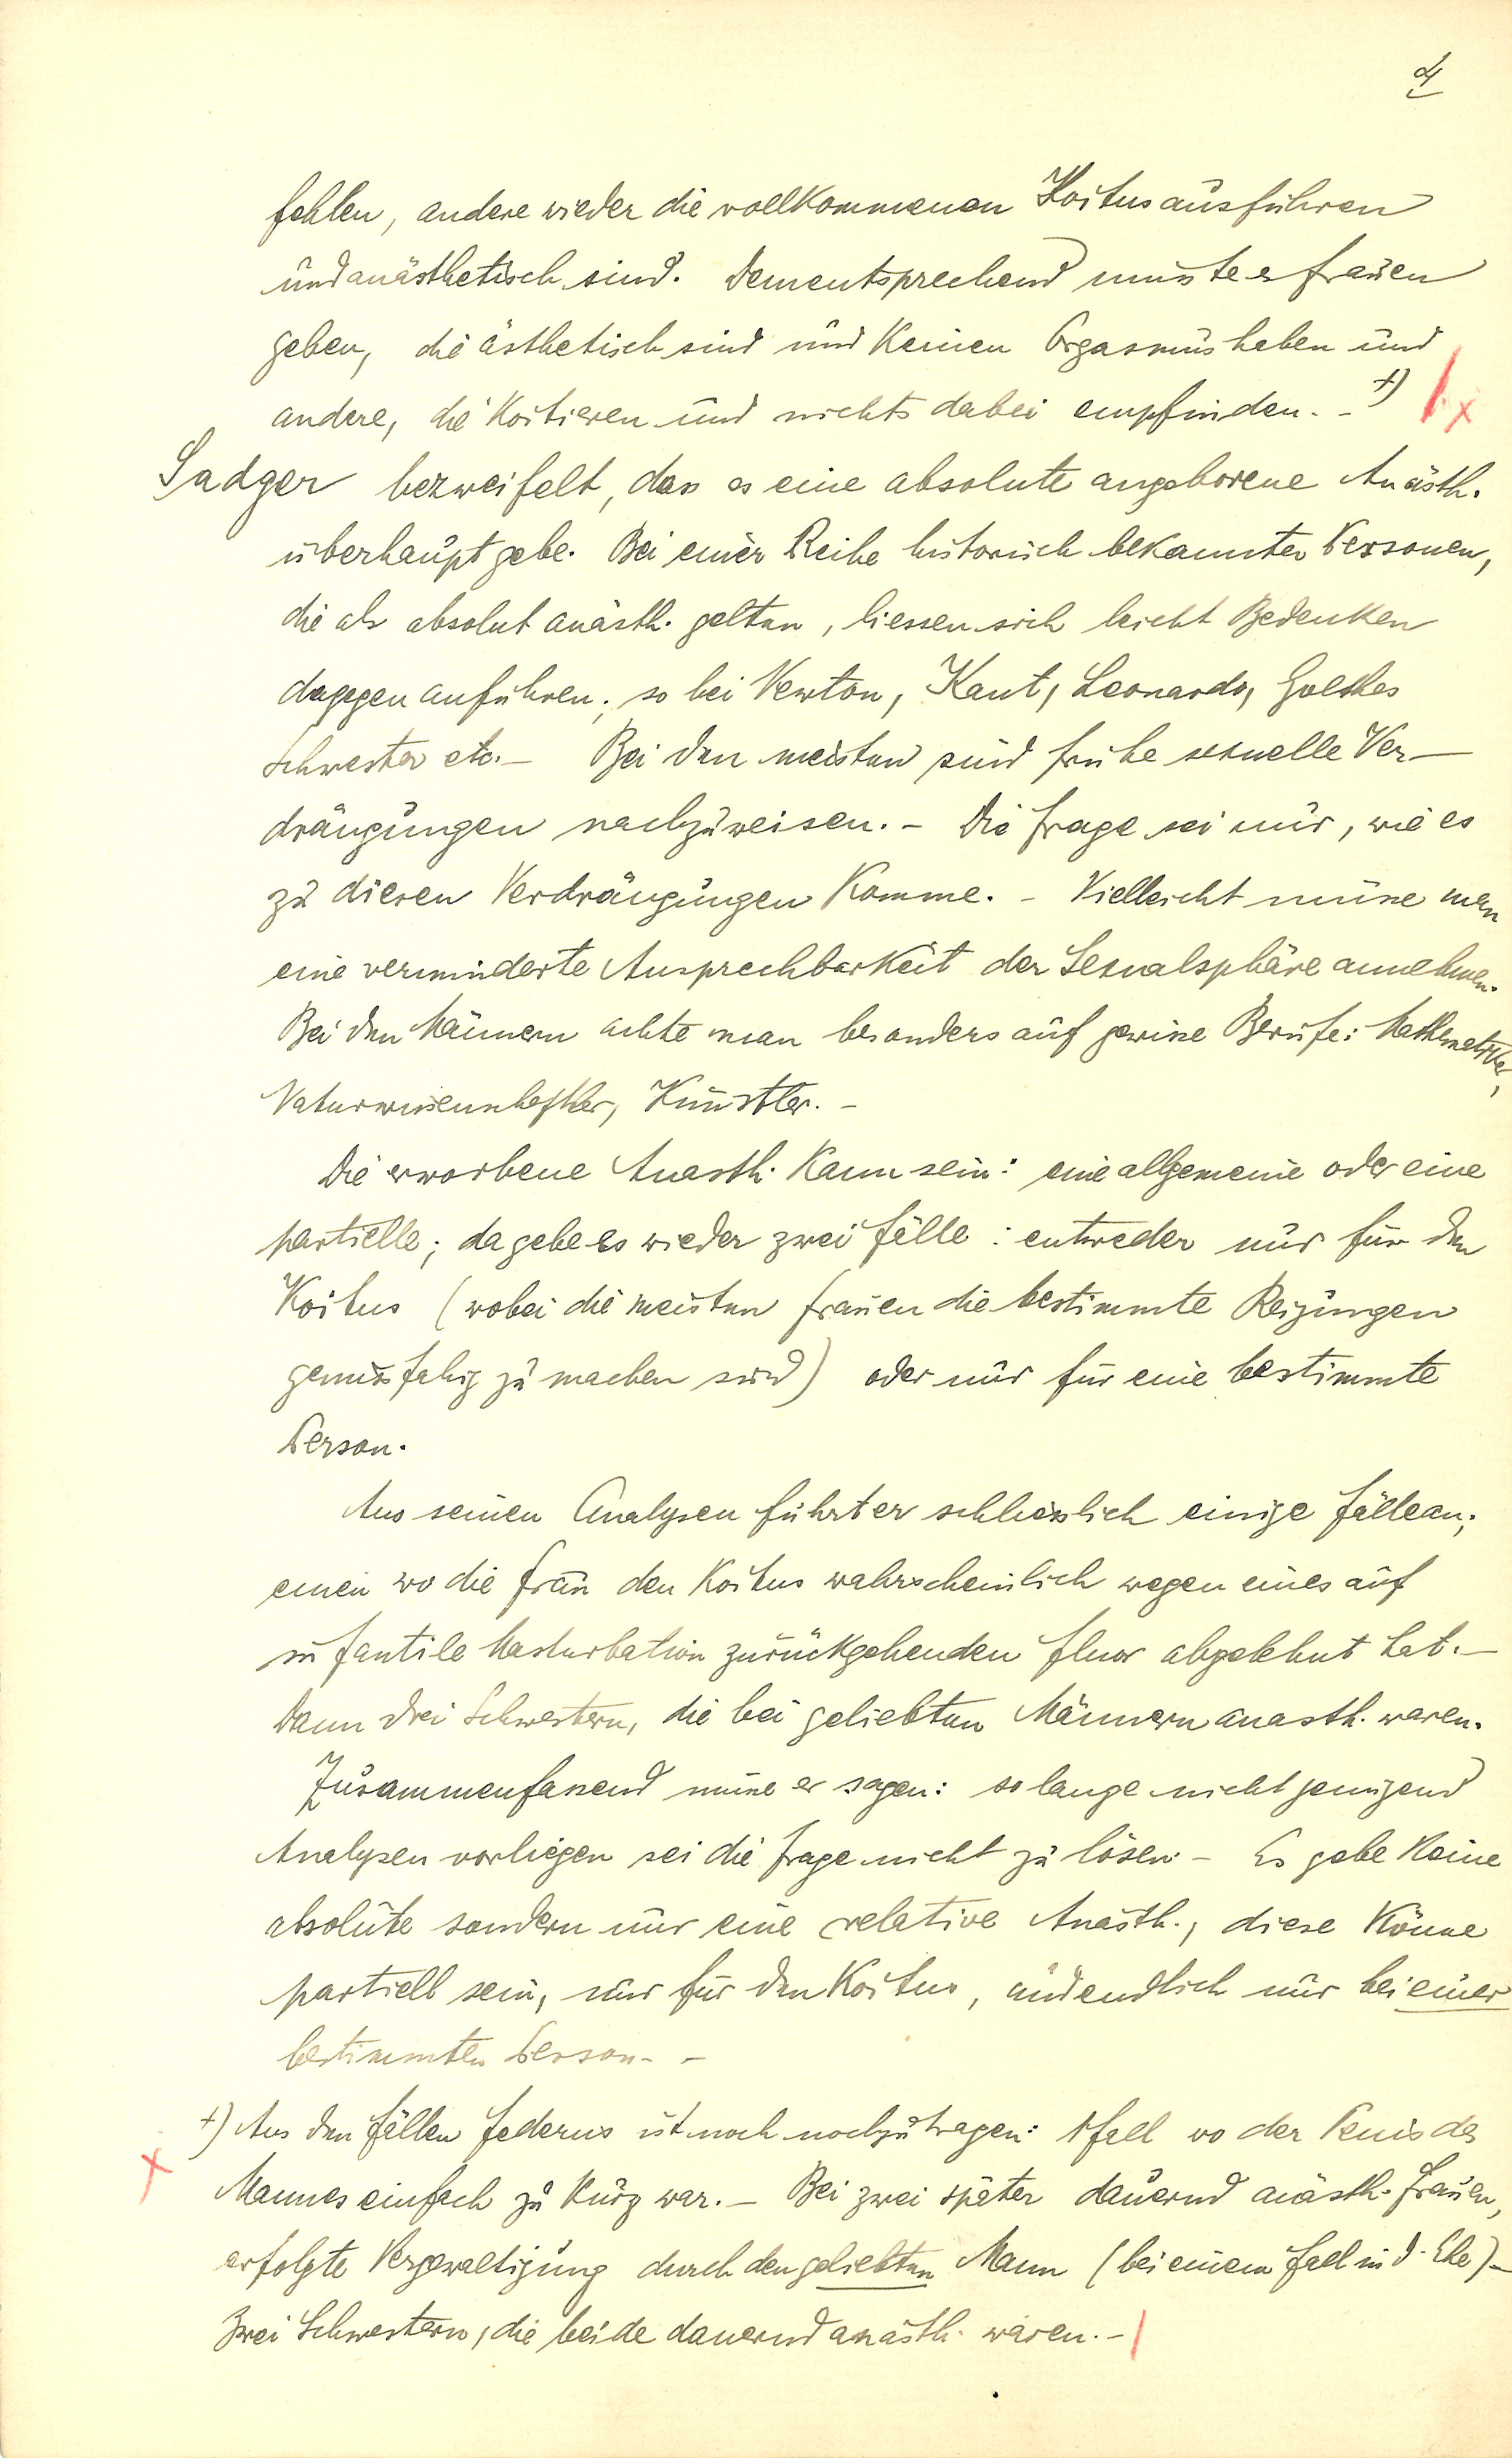 4
fehlen, andere wieder die vollkommenen Koitus ausführen
und anästhetisch sind. Dementsprechend müsste es Frauen
geben, die ästhetisch sind und keinen Orgasmus haben und
andere, die koitieren und nichts dabei empfinden. - +)
Sadger bezweifelt, dass es eine absolute angeborene Anästh.
überhaupt gebe. Bei einer Reihe historisch bekannter Personen,
die als absolut anästh. gelten, liessen sich leicht Bedenken
dagegen anführen; so bei Newton, Kant, Leonardo, Goethes
Schwester etc. - Bei den meisten sind frühe sexuelle Ver-
drängungen nachzuweisen. - Die Frage sei nur, wie es
zu diesen Verdrängungen komme. - Vielleicht müsse man
eine verminderte Ansprechbarkeit der Sexualsphäre annehmen.
Bei den Männern achte man besonders auf gewisse Berufe: Mathematiker,
Naturwissenschaftler, Künstler. -
Die erworbene Anästh. kann sein: eine allgemeine oder eine
partielle; da gebe es wieder zwei Fälle: entweder nur für den
Koitus (wobei die meisten Frauen die bestimmte Reizungen
genussfähig zu machen sind) oder nur für eine bestimmte
Person.
Aus seinen Analysen führt er schliesslich einige Fälle an;
einen wo die Frau den Koitus wahrscheinlich wegen eines auf
infantile Masturbation zurückgehenden Fluor abgelehnt hat. -
Dann drei Schwestern, die bei geliebten Männern anästh. waren.
Zusammenfassend müsse er sagen: so lange nicht genügend
Analysen vorliegen sei die Frage nicht zu lösen - Es gebe keine
absolute sondern nur eine relative Anästh., diese könne
partiell sein, nur für den Koitus, und endlich nur bei einer
bestimmten Person. -
+) Aus den Fällen Federns ist noch nachzutragen: 1 Fall wo der Penis des
Mannes einfach zu kurz war. - Bei zwei später dauernd anästh. Frauen,
erfolgte Vergewaltigung durch den geliebten Mann (bei einem Fall in d. Ehe) -
Zwei Schwestern, die beide dauernd anästh. waren. -